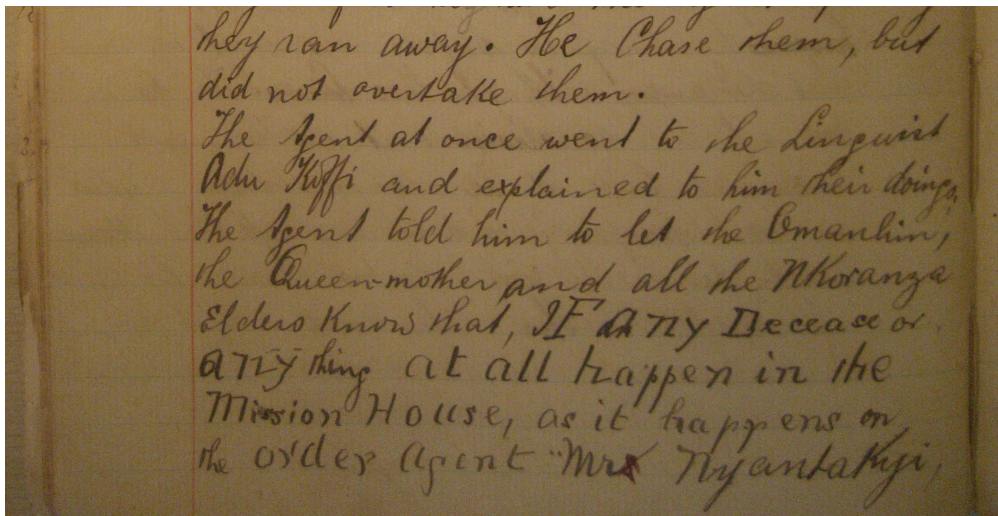 they ran away. He Chase them, but
did not overtake them.
The Agent at once went to the Linguist
Adu Koffi and explained to him their doings,
The Agent told him to let the Omanhin,
the Queen-mother and all the NKoranza
Elders Know that, IF any Decease or
any thing at all happen in the
Mission House, as it happens on
the order Agent "Mr Nyantakyi,